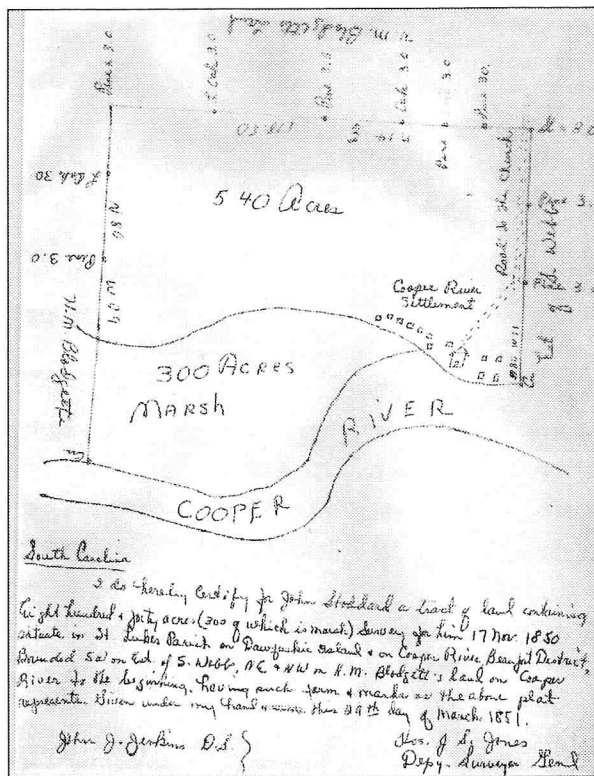 H. M. Blodgetts Land
Pine 3.0
L. Oak 3.0
Pine 3.0
Oak 3.0
Pine 3.0
Pine 30.
118.50
L. Oak 30
Pine 3.0
N 80
W 79
H. M. Blodgetts
540 Acres
Road to the Church
Est of
Cooper River
Settlement
300 ACRES
MARSH
RIVER
COOPER
South Carolina
I do hereby Certify for John Stoddard a tract of land containing
Eight hundred & forty acres (300 of which is marsh) Survey for him 17 Nov. 1850
situate in St. Lukes Parish on Dawfuskie Island & on Cooper River, Beaufort District,
Bounded So on Est. of S. Webb, NE & NW on H. M. Blodgett's land on Cooper
River to the beginning, having such form & marks as the above plat
represents. Given under my hand & this 29th day of March 1851.
John J. Jenkins D.S.
Thos. J S. Jones
Depy. Surveyor Genl